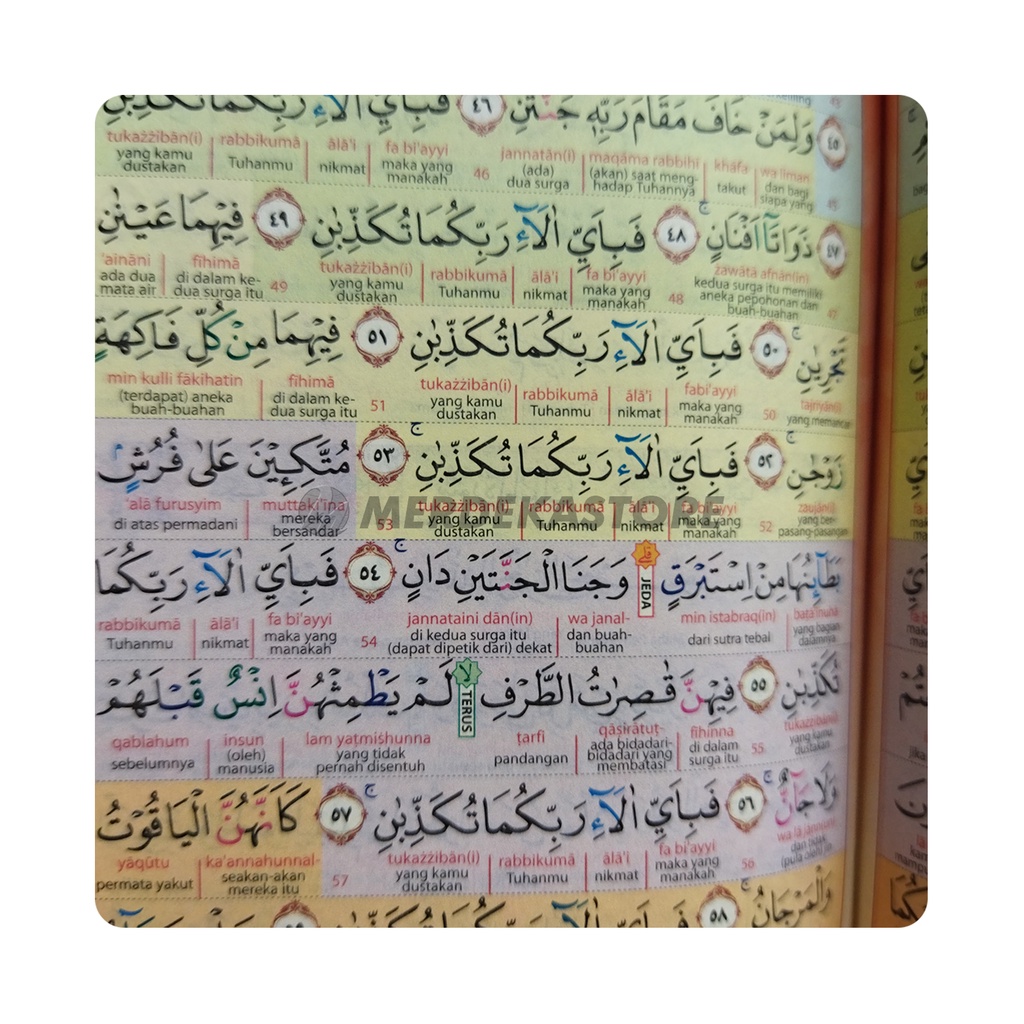 وَلِمَنْ خَافَ مَقَامَ رَبِّهٖ جَنَّتٰنِ ٤٦ فَبِاَيِّ اٰلَاۤءِ رَبِّكُمَا تُكَذِّبٰنِ
٤٥
wa liman khāfa maqāma rabbihī jannatān(i) fa bi'ayyi ālā'i rabbikumā tukażżibān(i)
dan bagi siapa yang takut (akan) saat meng-hadap Tuhannya (ada) dua surga 46 maka yang manakah nikmat Tuhanmu yang kamu dustakan
ذَوَاتَآ اَفْنَانٍۚ ٤٨ فَبِاَيِّ اٰلَاۤءِ رَبِّكُمَا تُكَذِّبٰنِ ٤٩ فِيْهِمَا عَيْنٰنِ
٤٧
żawātā afnān(in) fa bi'ayyi ālā'i rabbikumā tukażżibān(i) fīhimā 'aināni
47 kedua surga itu memiliki aneka pepohonan dan buah-buahan 48 maka yang manakah nikmat Tuhanmu yang kamu dustakan 49 di dalam ke-dua surga itu ada dua mata air
تَجْرِيٰنِۚ ٥٠ فَبِاَيِّ اٰلَاۤءِ رَبِّكُمَا تُكَذِّبٰنِ ٥١ فِيْهِمَا مِنْ كُلِّ فَاكِهَةٍ
tajriyān(i) fabi'ayyi ālā'i rabbikumā tukażżibān(i) fīhimā min kulli fākihatin
yang memancar 50 maka yang manakah nikmat Tuhanmu yang kamu dustakan 51 di dalam ke-dua surga itu (terdapat) aneka buah-buahan
زَوْجٰنِۚ ٥٢ فَبِاَيِّ اٰلَاۤءِ رَبِّكُمَا تُكَذِّبٰنِۚ ٥٣ مُتَّكِـِٕيْنَ عَلٰى فُرُشٍ
zaujān(i) fa bi'ayyi ālā'i rabbikumā tukażżibān(i) muttaki'īna 'alā furusyim
yang ber-pasang-pasangan 52 maka yang manakah nikmat Tuhanmu yang kamu dustakan 53 mereka bersandar di atas permadani
MERDEKASTORE
بَطَاۤىِٕنُهَا مِنْ اِسْتَبْرَقٍ JEDA وَجَنَا الْجَنَّتَيْنِ دَانٍۚ ٥٤ فَبِاَيِّ اٰلَاۤءِ رَبِّكُمَا
baṭā'inuhā min istabraq(in) wa janal- jannataini dān(in) fa bi'ayyi ālā'i rabbikumā
yang bagian dalamnya dari sutra tebal dan buah-buahan di kedua surga itu (dapat dipetik dari) dekat 54 maka yang manakah nikmat Tuhanmu
تُكَذِّبٰنِ ٥٥ فِيْهِنَّ قٰصِرٰتُ الطَّرْفِ لا TERUS لَمْ يَطْمِثْهُنَّ اِنْسٌ قَبْلَهُمْ
tukażżibān(i) fīhinna qāṣirātuṭ- ṭarfi lam yaṭmiṡhunna insun qablahum
yang kamu dustakan 55 di dalam surga itu ada bidadari-bidadari yang membatasi pandangan yang tidak pernah disentuh (oleh) manusia sebelumnya
وَلَا جَاۤنٌّۚ ٥٦ فَبِاَيِّ اٰلَاۤءِ رَبِّكُمَا تُكَذِّبٰنِۚ ٥٧ كَاَنَّهُنَّ الْيَاقُوْتُ
wa lā jānn(un) fa bi'ayyi ālā'i rabbikumā tukażżibān(i) ka'annahunnal- yāqūtu
dan tidak (pula oleh) jin 56 maka yang manakah nikmat Tuhanmu yang kamu dustakan 57 seakan-akan mereka itu permata yakut
وَالْمَرْجَانُۚ ٥٨ فَبِاَيِّ اٰلَاۤءِ رَبِّكُمَا تُكَذِّبٰنِ